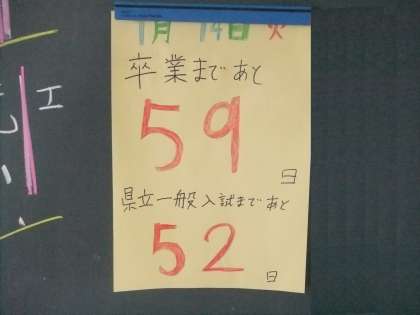 1月 14日 火
卒業まであと
59
日
県立一般入試まであと
52
日
エ